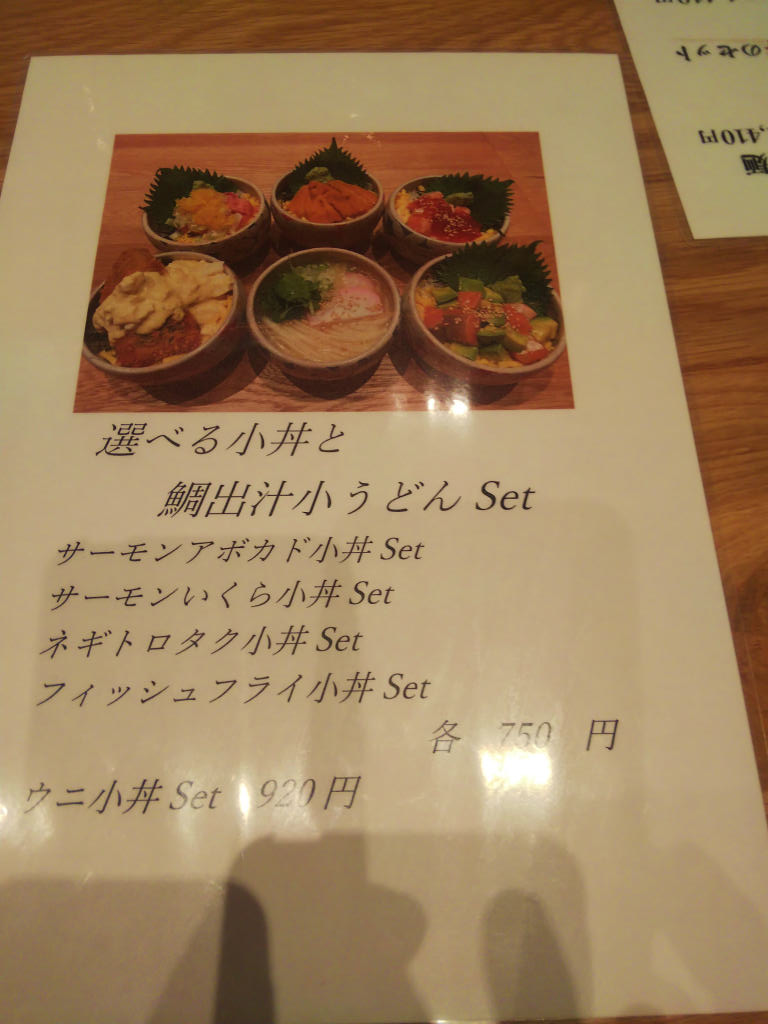 選べる小丼と
鯛出汁小うどん Set
サーモンアボカド小丼 Set
サーモンいくら小丼 Set
ネギトロタク小丼 Set
フィッシュフライ小丼 Set
各 750 円
ウニ小丼 Set 920 円
のセット
,410円
麺